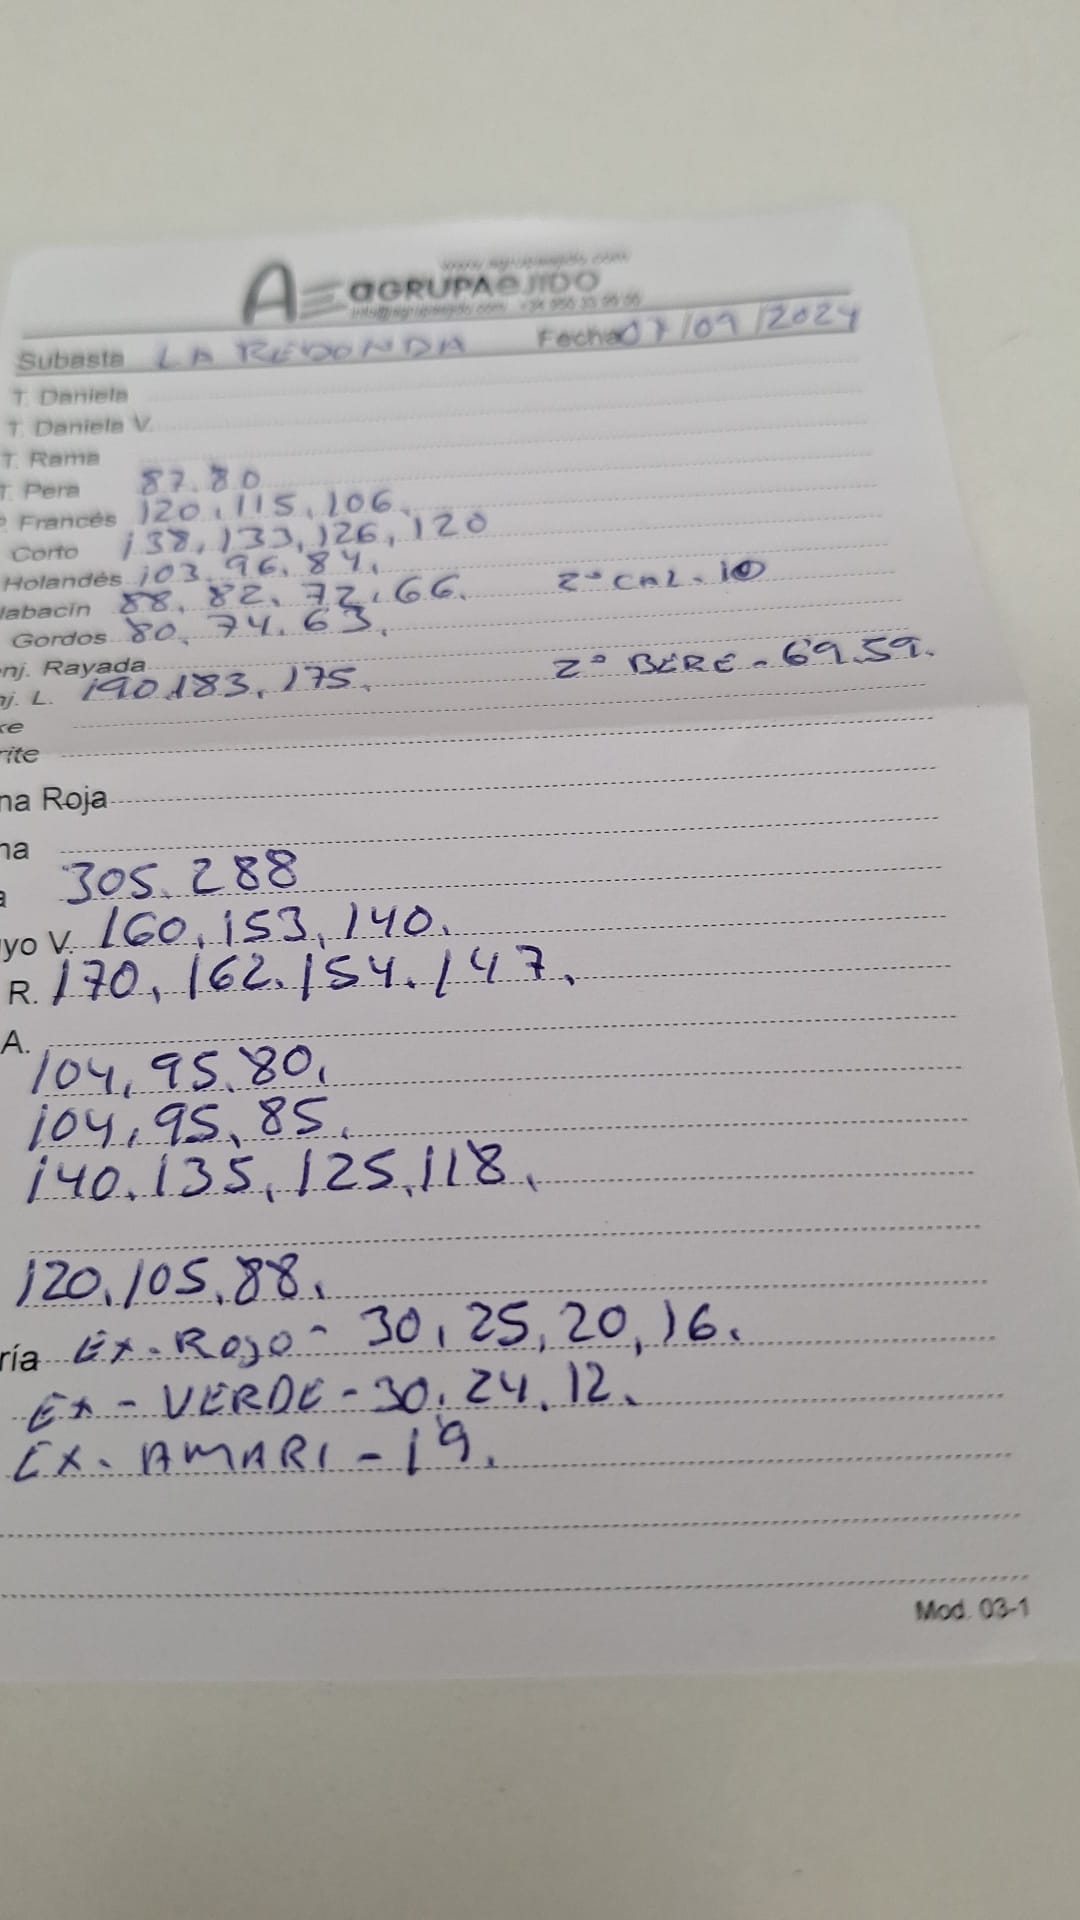 www.agrupaejido.com
AGRUPAEJIDO
Subasta LA REDONDA Fecha 07/09/2024
T. Daniela
T. Daniela V.
T. Rama
T. Pera 87.80
Francés 120, 115, 106.
Corto 138, 133, 126, 120
Holandés 103.96.84,
labacín 88, 82, 72, 66. 2º CAL. 10
Gordos 80, 74.63,
enj. Rayada
nj. L. 190.183, 175. 2º BERE - 69.59.
rite
na Roja
na
a 305. 288
yo V. 160, 153, 140.
R. 170, 162.154.147.
A.
104, 95.80,
104, 95, 85,
140.135, 125, 118,
120, 105, 88,
ría EX. ROJO - 30, 25, 20, 16.
EX - VERDE - 30, 24, 12.
EX. AMARI - 19.
Mod. 03-1